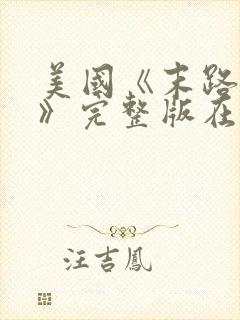 美國《末路
》完整版在
汪吉鳳